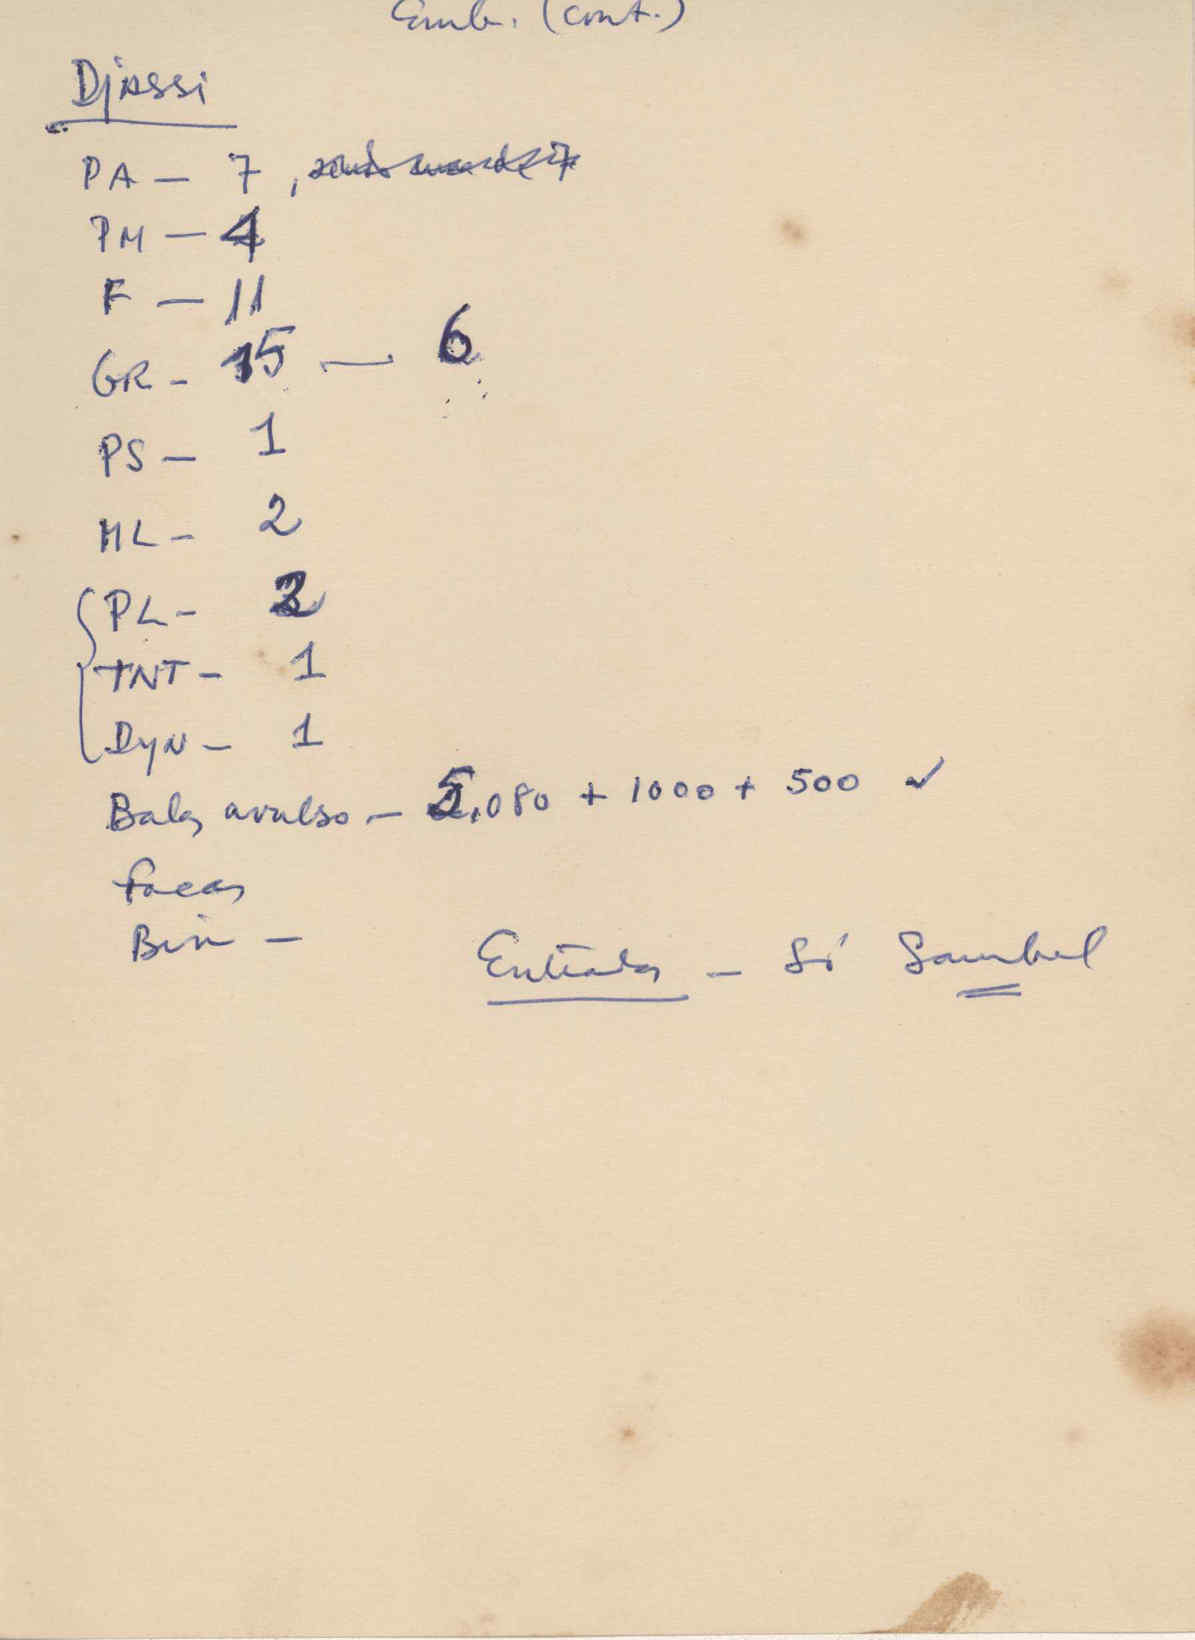 Emb. (cont.)
Djassi
PA — 7,
PM — 4
F — 11
GR - 15 — 6
PS — 1
ML - 2
PL - 2
TNT - 1
Dyn - 1
Balas avulso — 5.080 + 1000 + 500 ✓
facas
Bin —
Entradas — Só Sambel